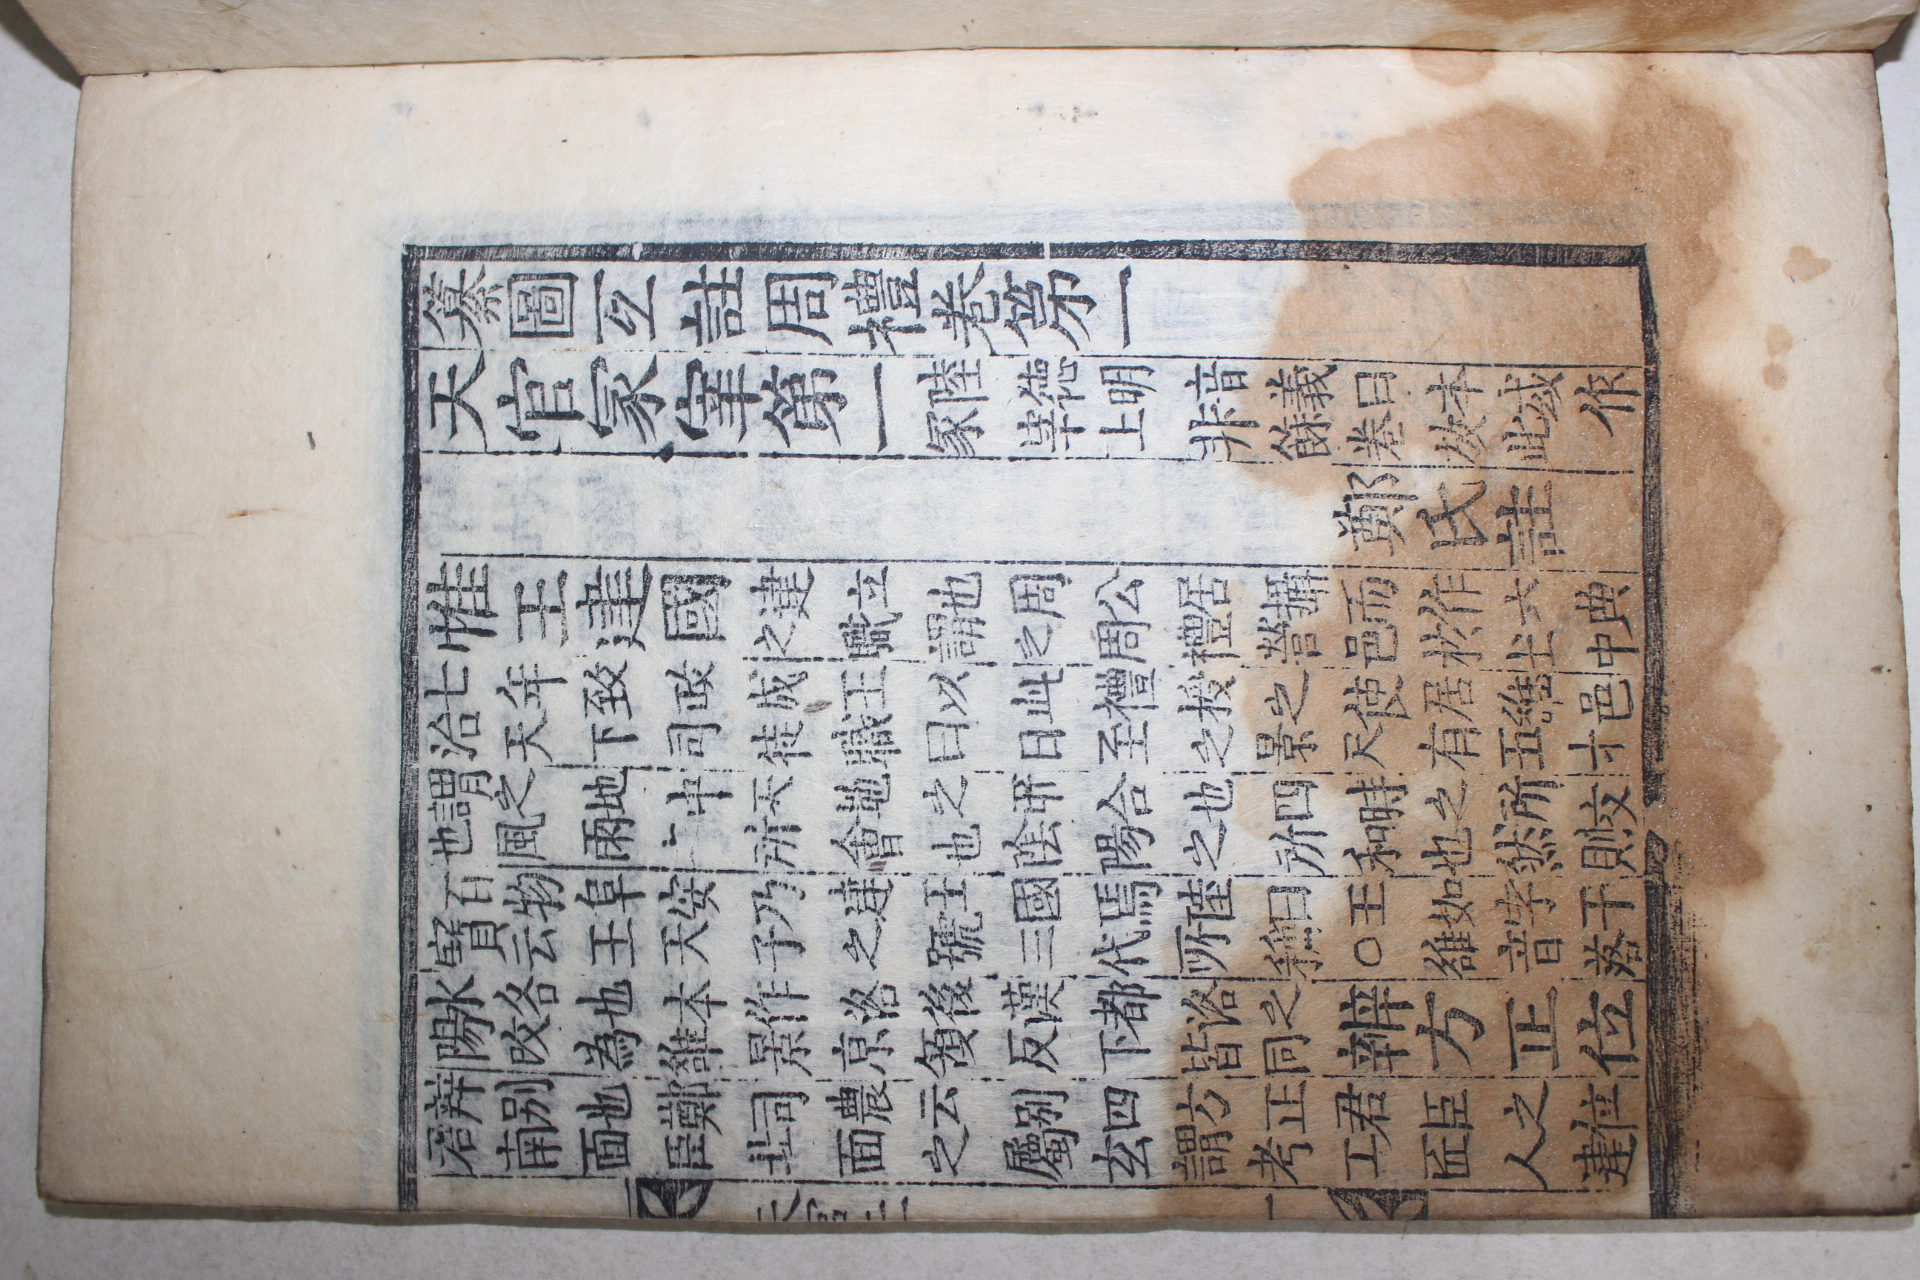 纂圖互註周禮卷第一
天官冢宰第一
陸德明音義曰本或作
冢宰上非餘卷放此
鄭氏註
惟王建國
建立也周公居攝而作六典
之職謂之周禮營邑於土中
七年致政成王以此禮授之使居雒邑
治天下司徒職曰日至之景尺有五寸
謂之地中天地之所合也四時之所交
也風雨之所會也陰陽之所和也然則
百物阜安乃建王國焉陸曰王如字干
寶云王天子之號三代所稱○雒音落
水名也本作洛後漢都洛之
陽改為雒景京領反下皆同
辨方正位
辨別也鄭司農云別四方正君臣之位
君南面臣北面之屬玄謂考工匠人建
天官上
一